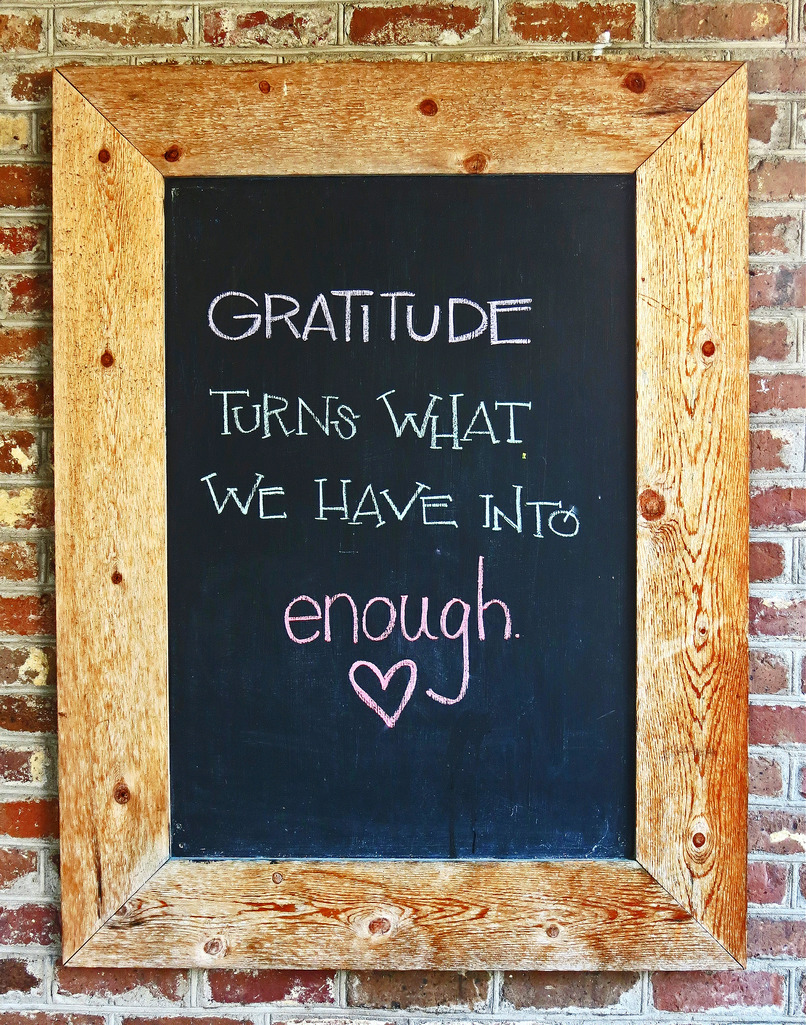 GRATITUDE
TURNS WHAT
WE HAVE INTO
enough.